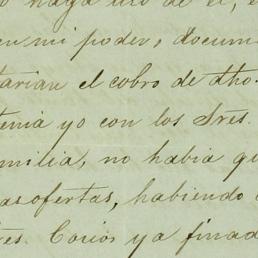 haga uso de él, e
en mi poder, docum
tarian el cobro de dho.
tenia yo con los Sres.
milia, no habia qu
as ofertas, habiendo
res. Cocios ya finad